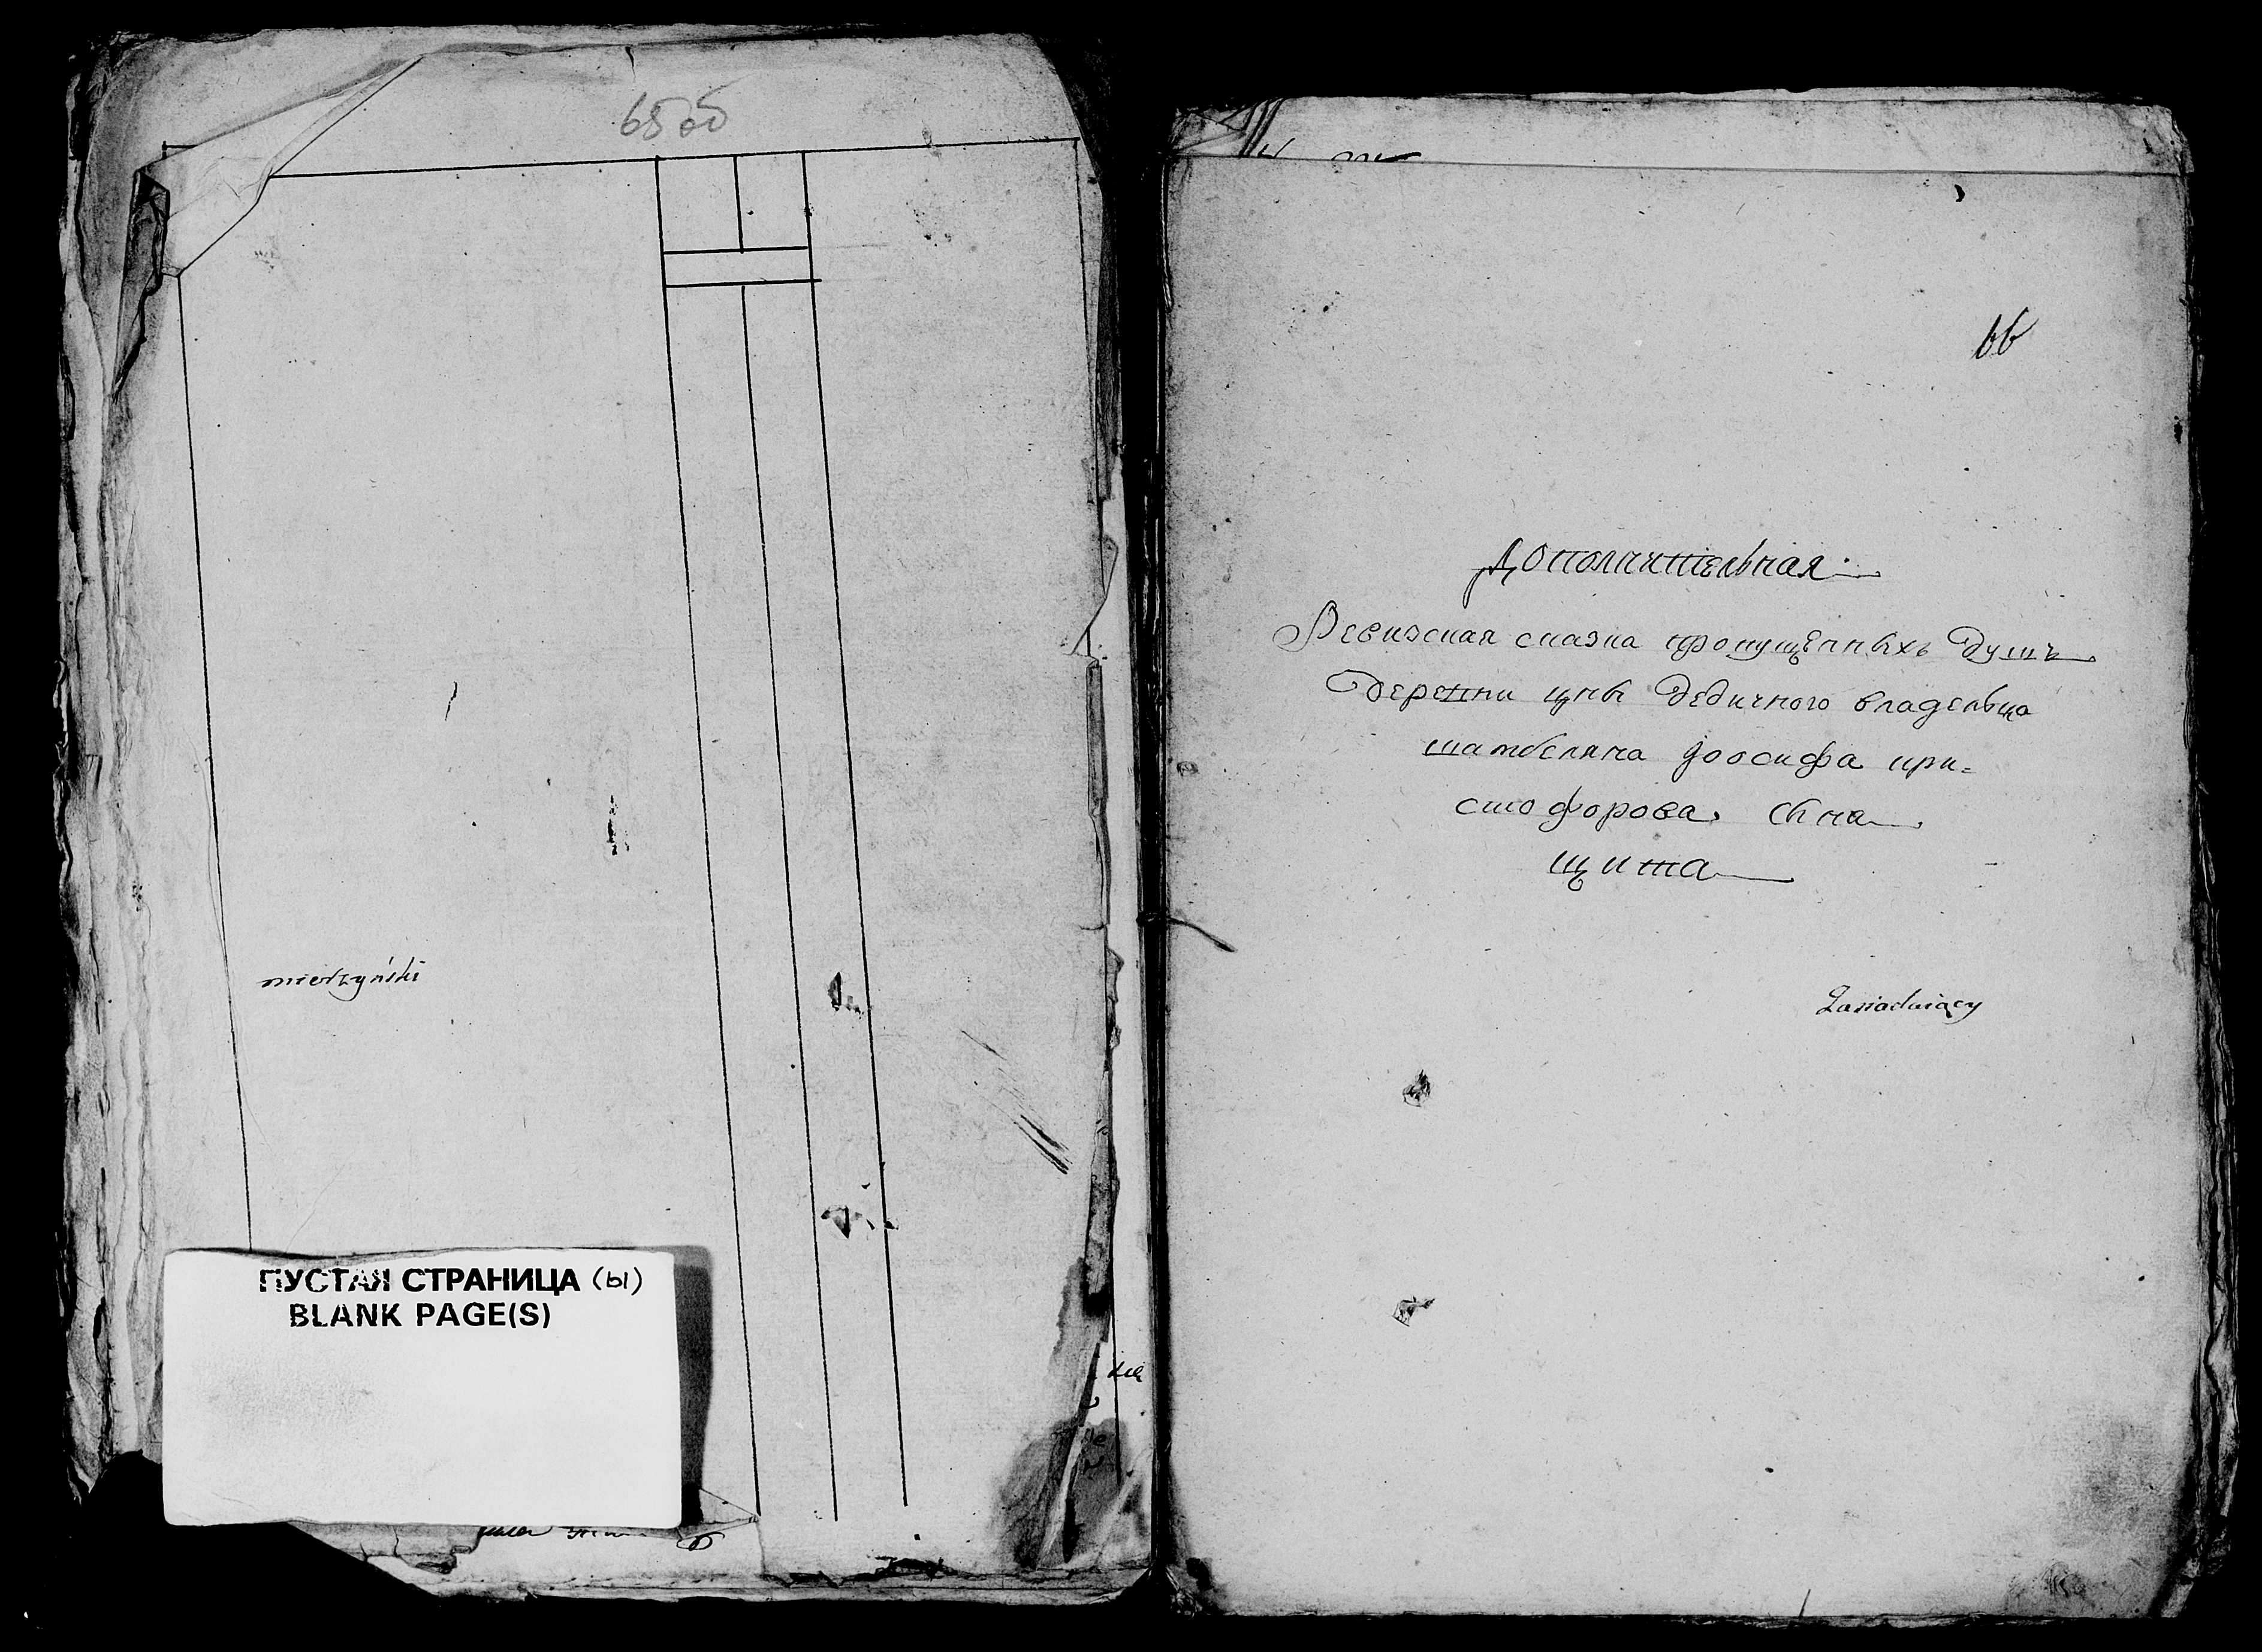 65об
mierzyński
ПУСТАЯ СТРАНИЦА (ы)
BLANK PAGE(S)
66
Дополнительная
Ревизская сказка пропущенныхъ душъ
деревни цны дедичного владельца
шамбеляна Іосифа кри=
стофорова сына
щита
Zasiadaiący